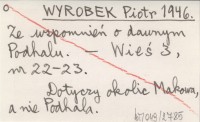 o WYROBEK Piotr 1946.
Ze wspomnień o dawnym
Podhalu. — Wieś 3,
nr 22-23.
Dotyczy okolic Makowa,
a nie Podhala.
kt/049/2785